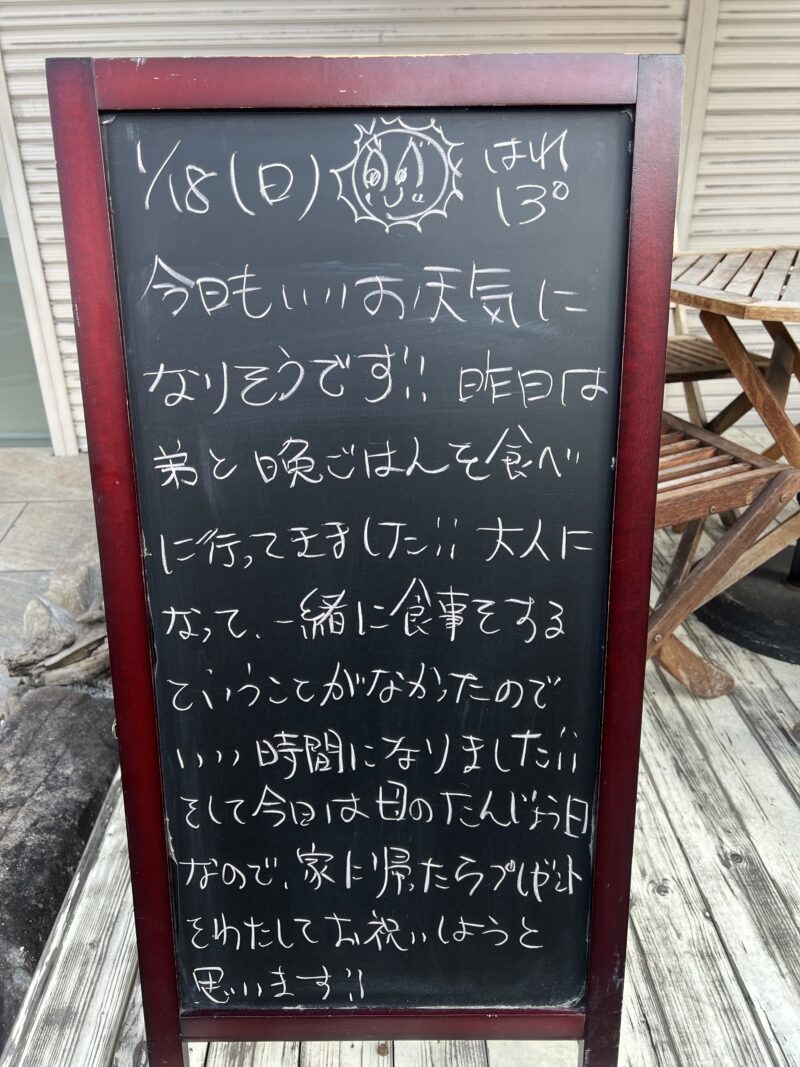 1/18(日) はれ 13°
今日もいいお天気に
なりそうです!! 昨日は
弟と晩ごはんを食べ
に行ってきました!! 大人に
なって、一緒に食事をする
ていうことがなかったので
いい時間になりました!!
そして今日は母のたんじょう日
なので、家に帰ったらプレゼント
をわたしてお祝いしようと
思います!!